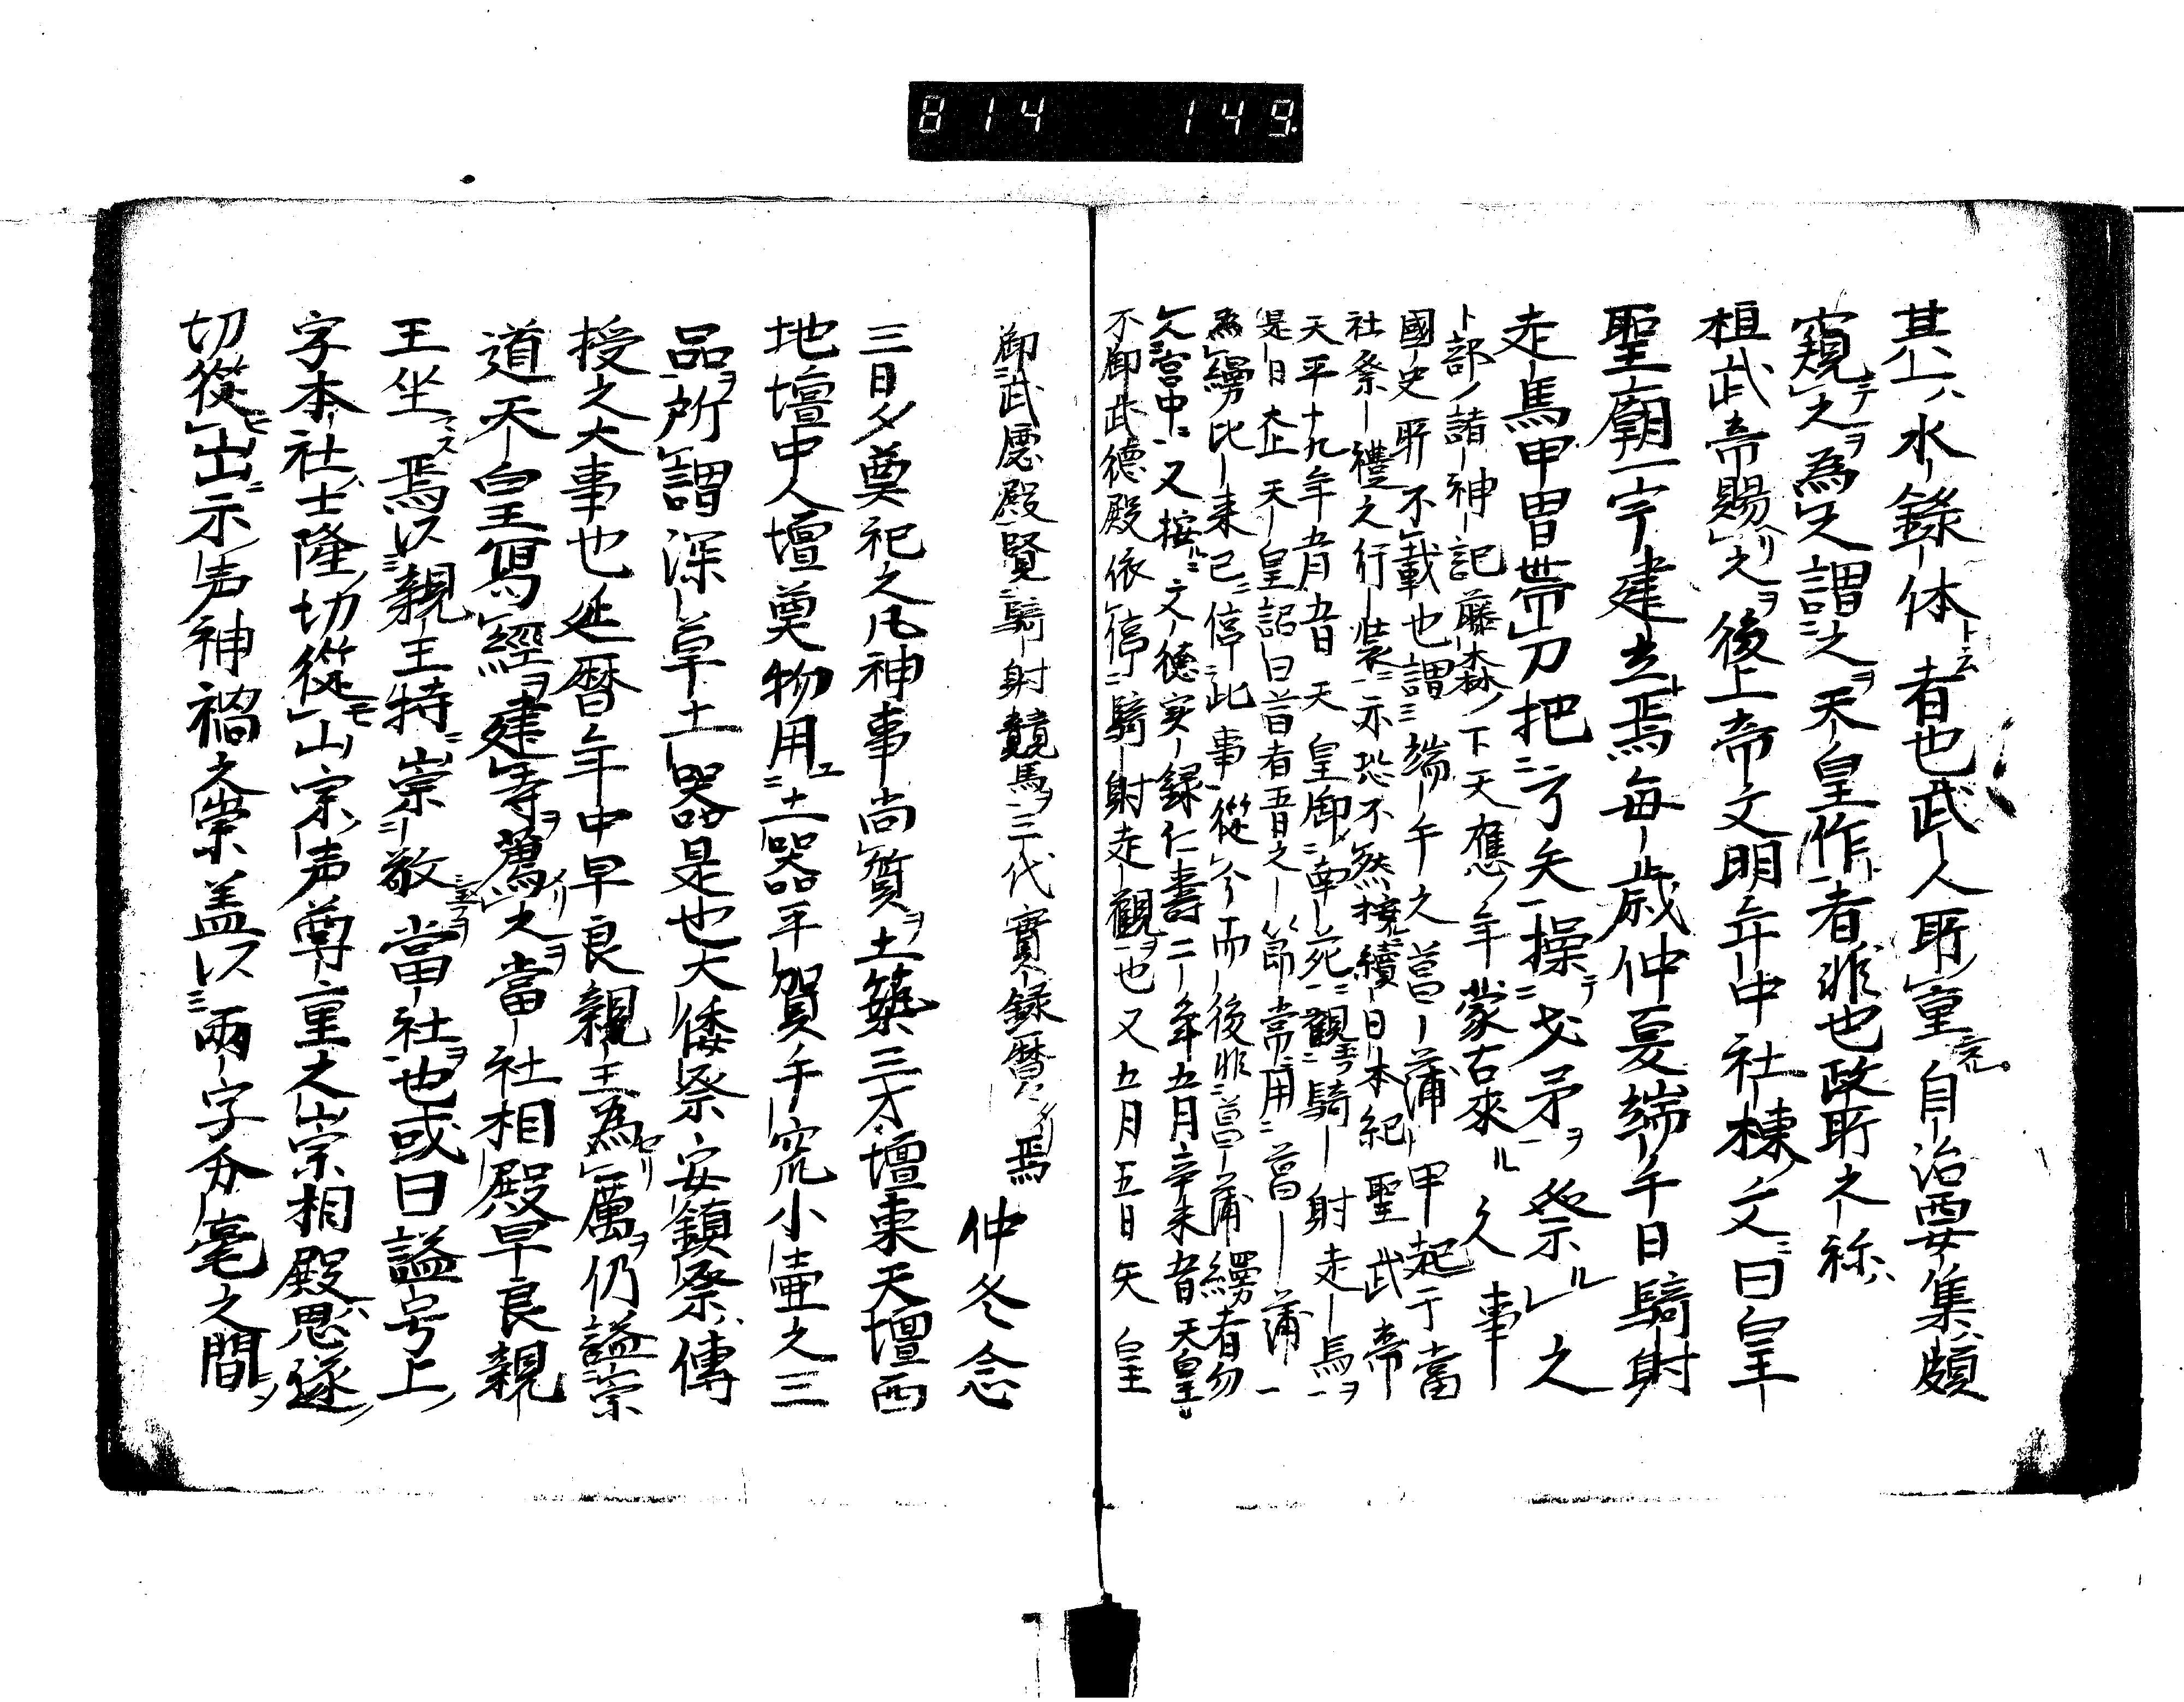 814 149.
其一ハ水錄体ト云者也武人所重云。自治要集頗
窺テ之ヲ為之謂之ヲ天皇作者非也政所之祢ハ
祖武帝賜リ之ヲ後上帝文明年中社棟文ニ曰皇
聖廟一宇建立焉ト每歲仲夏端午日騎射
走馬甲冑帶刀把弓矢操テ戈矛ヲ祭ル之
卜部ノ諸神記藤森ノ下天應ノ年蒙古來ル久事
國史所不載也謂端午之菖蒲甲起于當
社祭礼之行裝亦恐不然按續日本紀聖武帝
天平十九年五月五日天皇御南苑觀騎射走馬ヲ
是日太上天皇詔曰昔者五日之節常用菖蒲
為縵比來已停此事從今而後非菖蒲縵者勿
入宮中又按ルニ文德実錄仁壽二年五月辛未者天皇
不御武德殿依停騎射走觀ヲ也又五月五日矢皇
御武德殿覽騎射競馬ヲ三代實錄曆ノ焉
仲冬念
三日夕奠祀之凡神事尚質ヲ土築三才壇東天壇西
地壇中人壇奠物用土器平賀手窕小壷之三
品ヲ所謂深草土器是也大倭祭安鎮祭ハ傳
授之大事也延曆年中早良親王為セリ厲ヲ仍謚崇
道天皇寫經ヲ建寺ヲ薦之ヲ當社相殿早良親
王坐マス焉以親王特崇敬當社ヲ也或曰謚号上ノ
字本社士隆ノ切從モ山宗ノ声尊重之崇相殿ハ思遂ノ
切從モ出示ノ声神禍之祟盖以兩字分毫之間ヲ